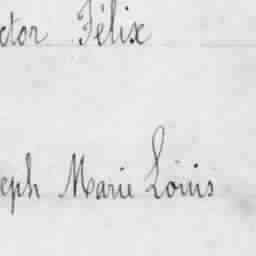 ctor Félix
eph Marie Louis